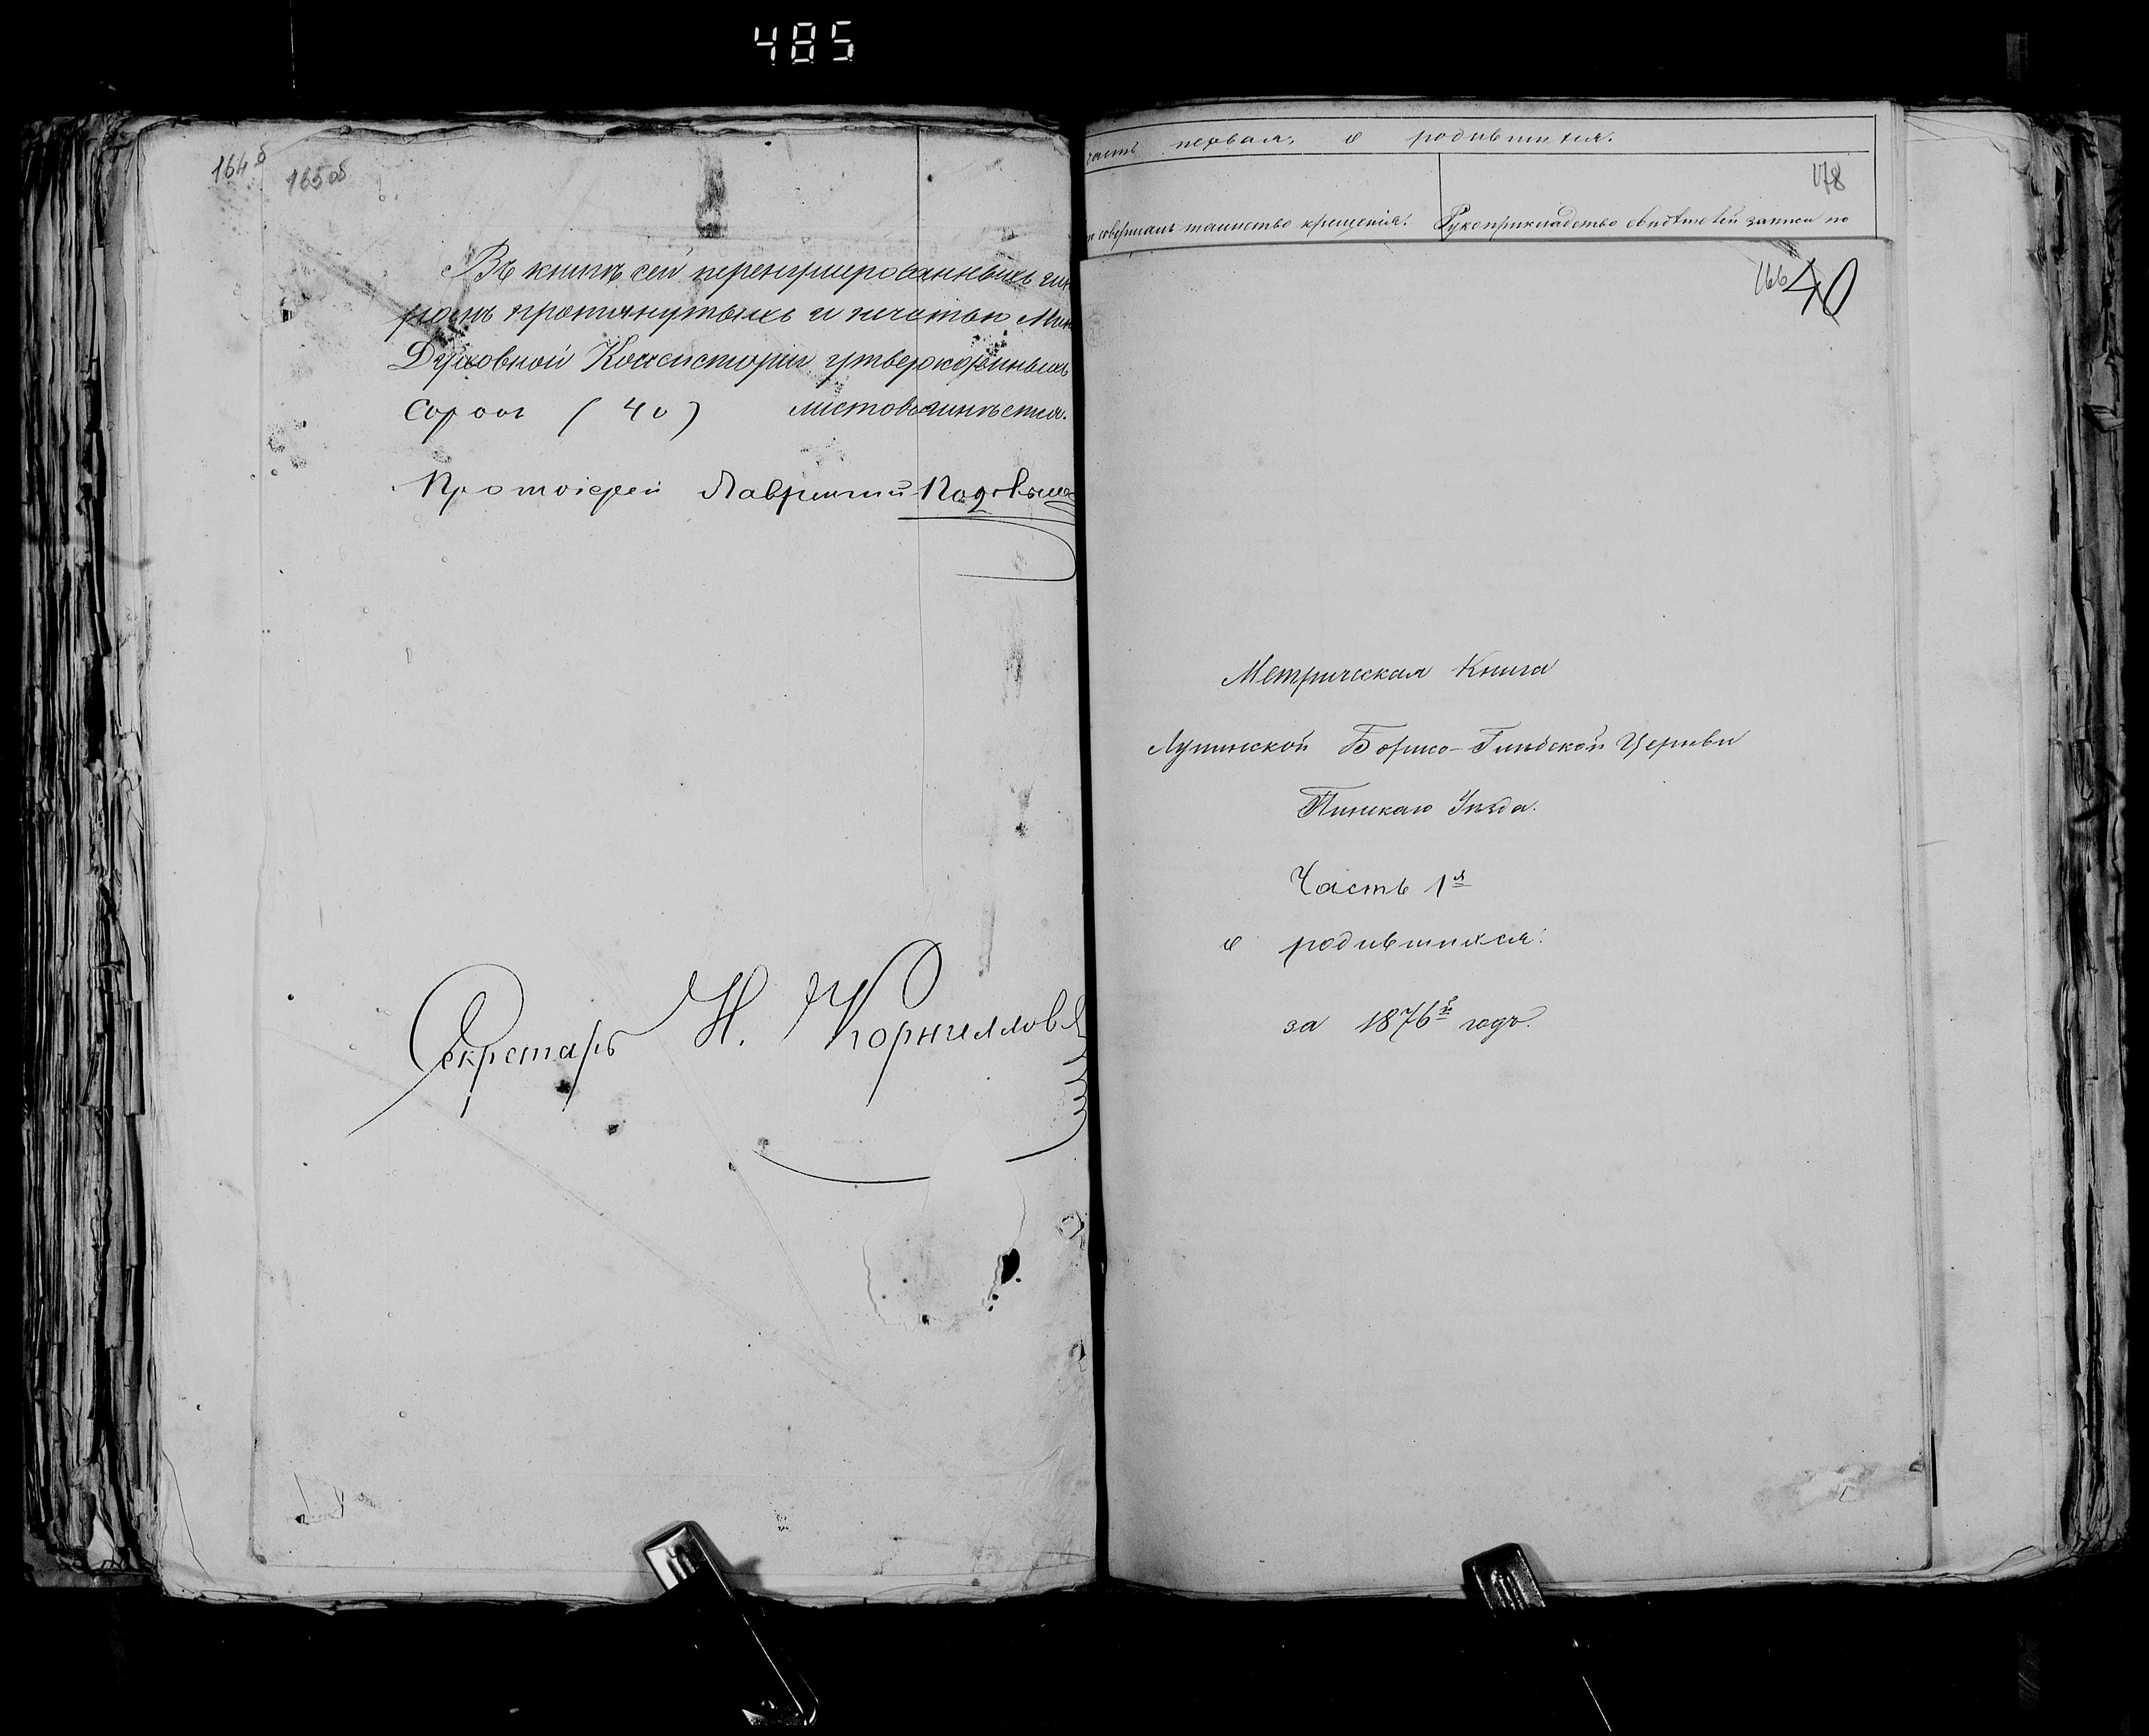 485
164б
165об
Въ книгѣ сей перенумерованныхъ
протянутыхъ и печатью
Духовной Консисторіи утвержденныхъ
Сорокъ (40) листовъ имѣется.
Протоіерей Лаврентій
Секретарь Н. Корниллов
первая, о родившихся.
178
совершалъ таинство крещенія. Рукоприкладство свидѣтелей записи по
166 40
Метрическая Книга
Лунинской Борисо-Глѣбской Церкви
Пинскаго Уѣзда.
Часть 1я
о родившихся.
за 1876й годъ.